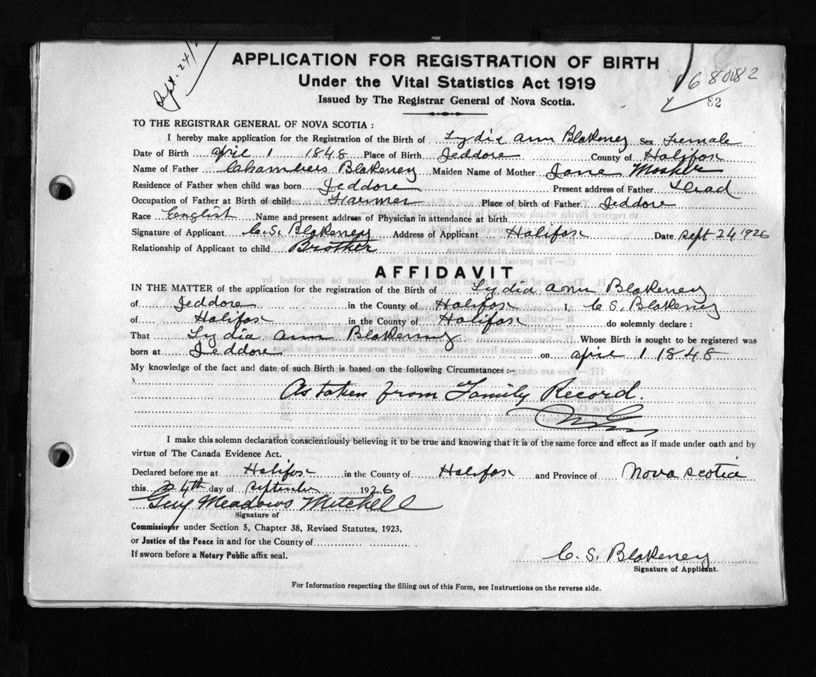 Sept. 24/
APPLICATION FOR REGISTRATION OF BIRTH
68082
Under the Vital Statistics Act 1919
82
Issued by The Registrar General of Nova Scotia.
TO THE REGISTRAR GENERAL OF NOVA SCOTIA :
I hereby make application for the Registration of the Birth of Lydia Ann Blakeney Sex Female
Date of Birth April 1 1848 Place of Birth Jeddore County of Halifax
Name of Father Chambers Blakeney Maiden Name of Mother Jane
Residence of Father when child was born Jeddore Present address of Father Dead
Occupation of Father at Birth of child Farmer Place of birth of Father Jeddore
Race English Name and present address of Physician in attendance at birth
Signature of Applicant C. S. Blakeney Address of Applicant Halifax Date Sept 24 1926
Relationship of Applicant to child Brother
AFFIDAVIT
IN THE MATTER of the application for the registration of the Birth of Lydia Ann Blakeney
of Jeddore in the County of Halifax I, C. S. Blakeney
of Halifax in the County of Halifax do solemnly declare :
That Lydia Ann Blakeney Whose Birth is sought to be registered was
born at Jeddore on April 1 1848
My knowledge of the fact and date of such Birth is based on the following Circumstances :-
As taken from Family Record.
I make this solemn declaration conscientiously believing it to be true and knowing that it is of the same force and effect as if made under oath and by
virtue of The Canada Evidence Act.
Declared before me at Halifax in the County of Halifax and Province of Nova Scotia
this 24th day of September 1926
Guy Meadows Mitchell
Signature of
Commissioner under Section 5, Chapter 38, Revised Statutes, 1923.
or Justice of the Peace in and for the County of
If sworn before a Notary Public affix seal.
C. S. Blakeney
Signature of Applicant.
For Information respecting the filling out of this Form, see Instructions on the reverse side.